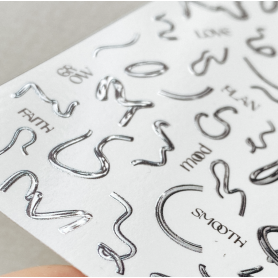 LOVE
PLAN
FAITH
mood
SMOOTH